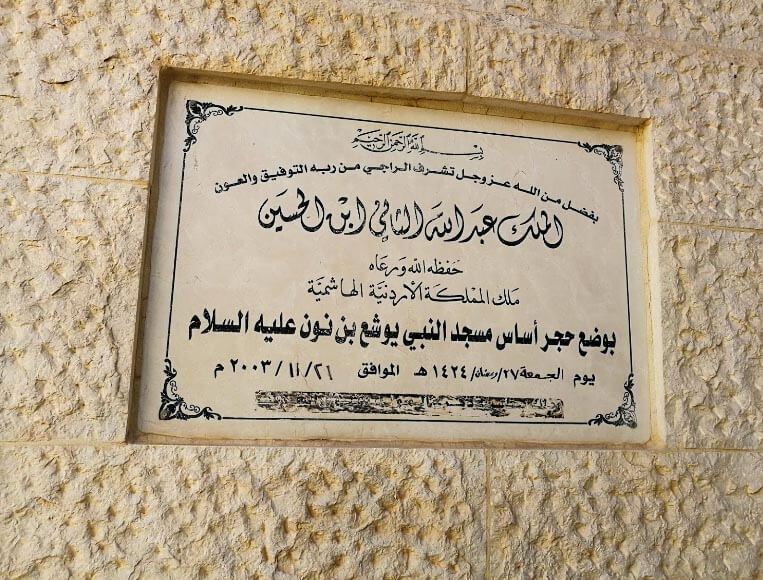 بسم الله الرحمن الرحيم
بفضل من الله عز وجل تشرف الراجي من ربه التوفيق والعون
الملك عبدالله الثاني ابن الحسين
حفظه الله ورعاه
ملك المملكة الأردنية الهاشمية
بوضع حجر أساس مسجد النبي يوشع بن نون عليه السلام
يوم الجمعة ٢٧/رمضان/١٤٢٤ هـ الموافق ٢٠٠٣/١١/٢١ م